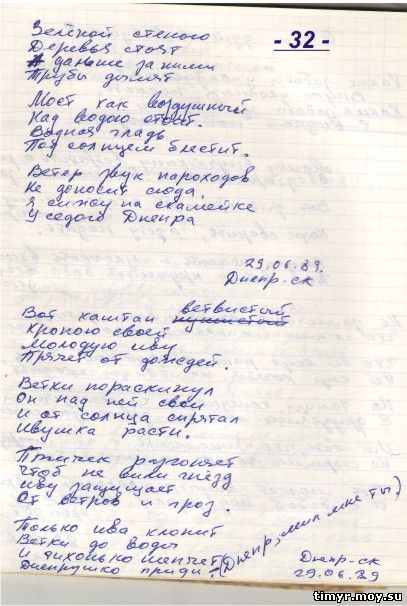 - 32 -
Зелёной стеною
Деревья стоят
А дальше за ними
Трубы дымят
Мост как воздушный
Над водою стоит.
Водная гладь
Под солнцем блестит.
Ветер звук пароходов
Не доносит сюда,
Я сижу на скамейке
У седого Днепра
29.06.89.
Днепр-ск
ветвистый
Вот каштан пушистый
Кроною своей
Молодую иву
Прячет от дождей.
Ветки пораскинул
Он над ней свои
и от солнца спрятал
Ивушка расти.
Птичек разгоняет
Чтоб не вили гнёзд
иву защищает
От ветров и гроз.
Только ива клонит
Ветки до воды
И тихонько шепчет
Днепрушко приди! (Днепр, мил мне ты!)
Днепр-ск
29.06.89
timyr.moy.su